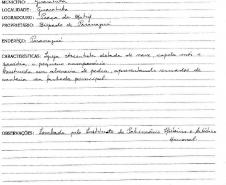 MUNICÍPIO: Guaratuba
LOCALIDADE: Guaratuba
LOGRADOURO: Praça da Matriz
PROPRIETÁRIO: Bispado de Paranaguá
ENDEREÇO: Paranaguá
CARACTERÍSTICAS: Igreja dotada de nave, capela mór e
sacristia e pequeno
Construída em alvenaria de pedra, apresentando
cantaria da fachada principal.
OBSERVAÇÕES: Tombada pelo Instituto do Patrimônio Histórico e Artístico
Nacional.